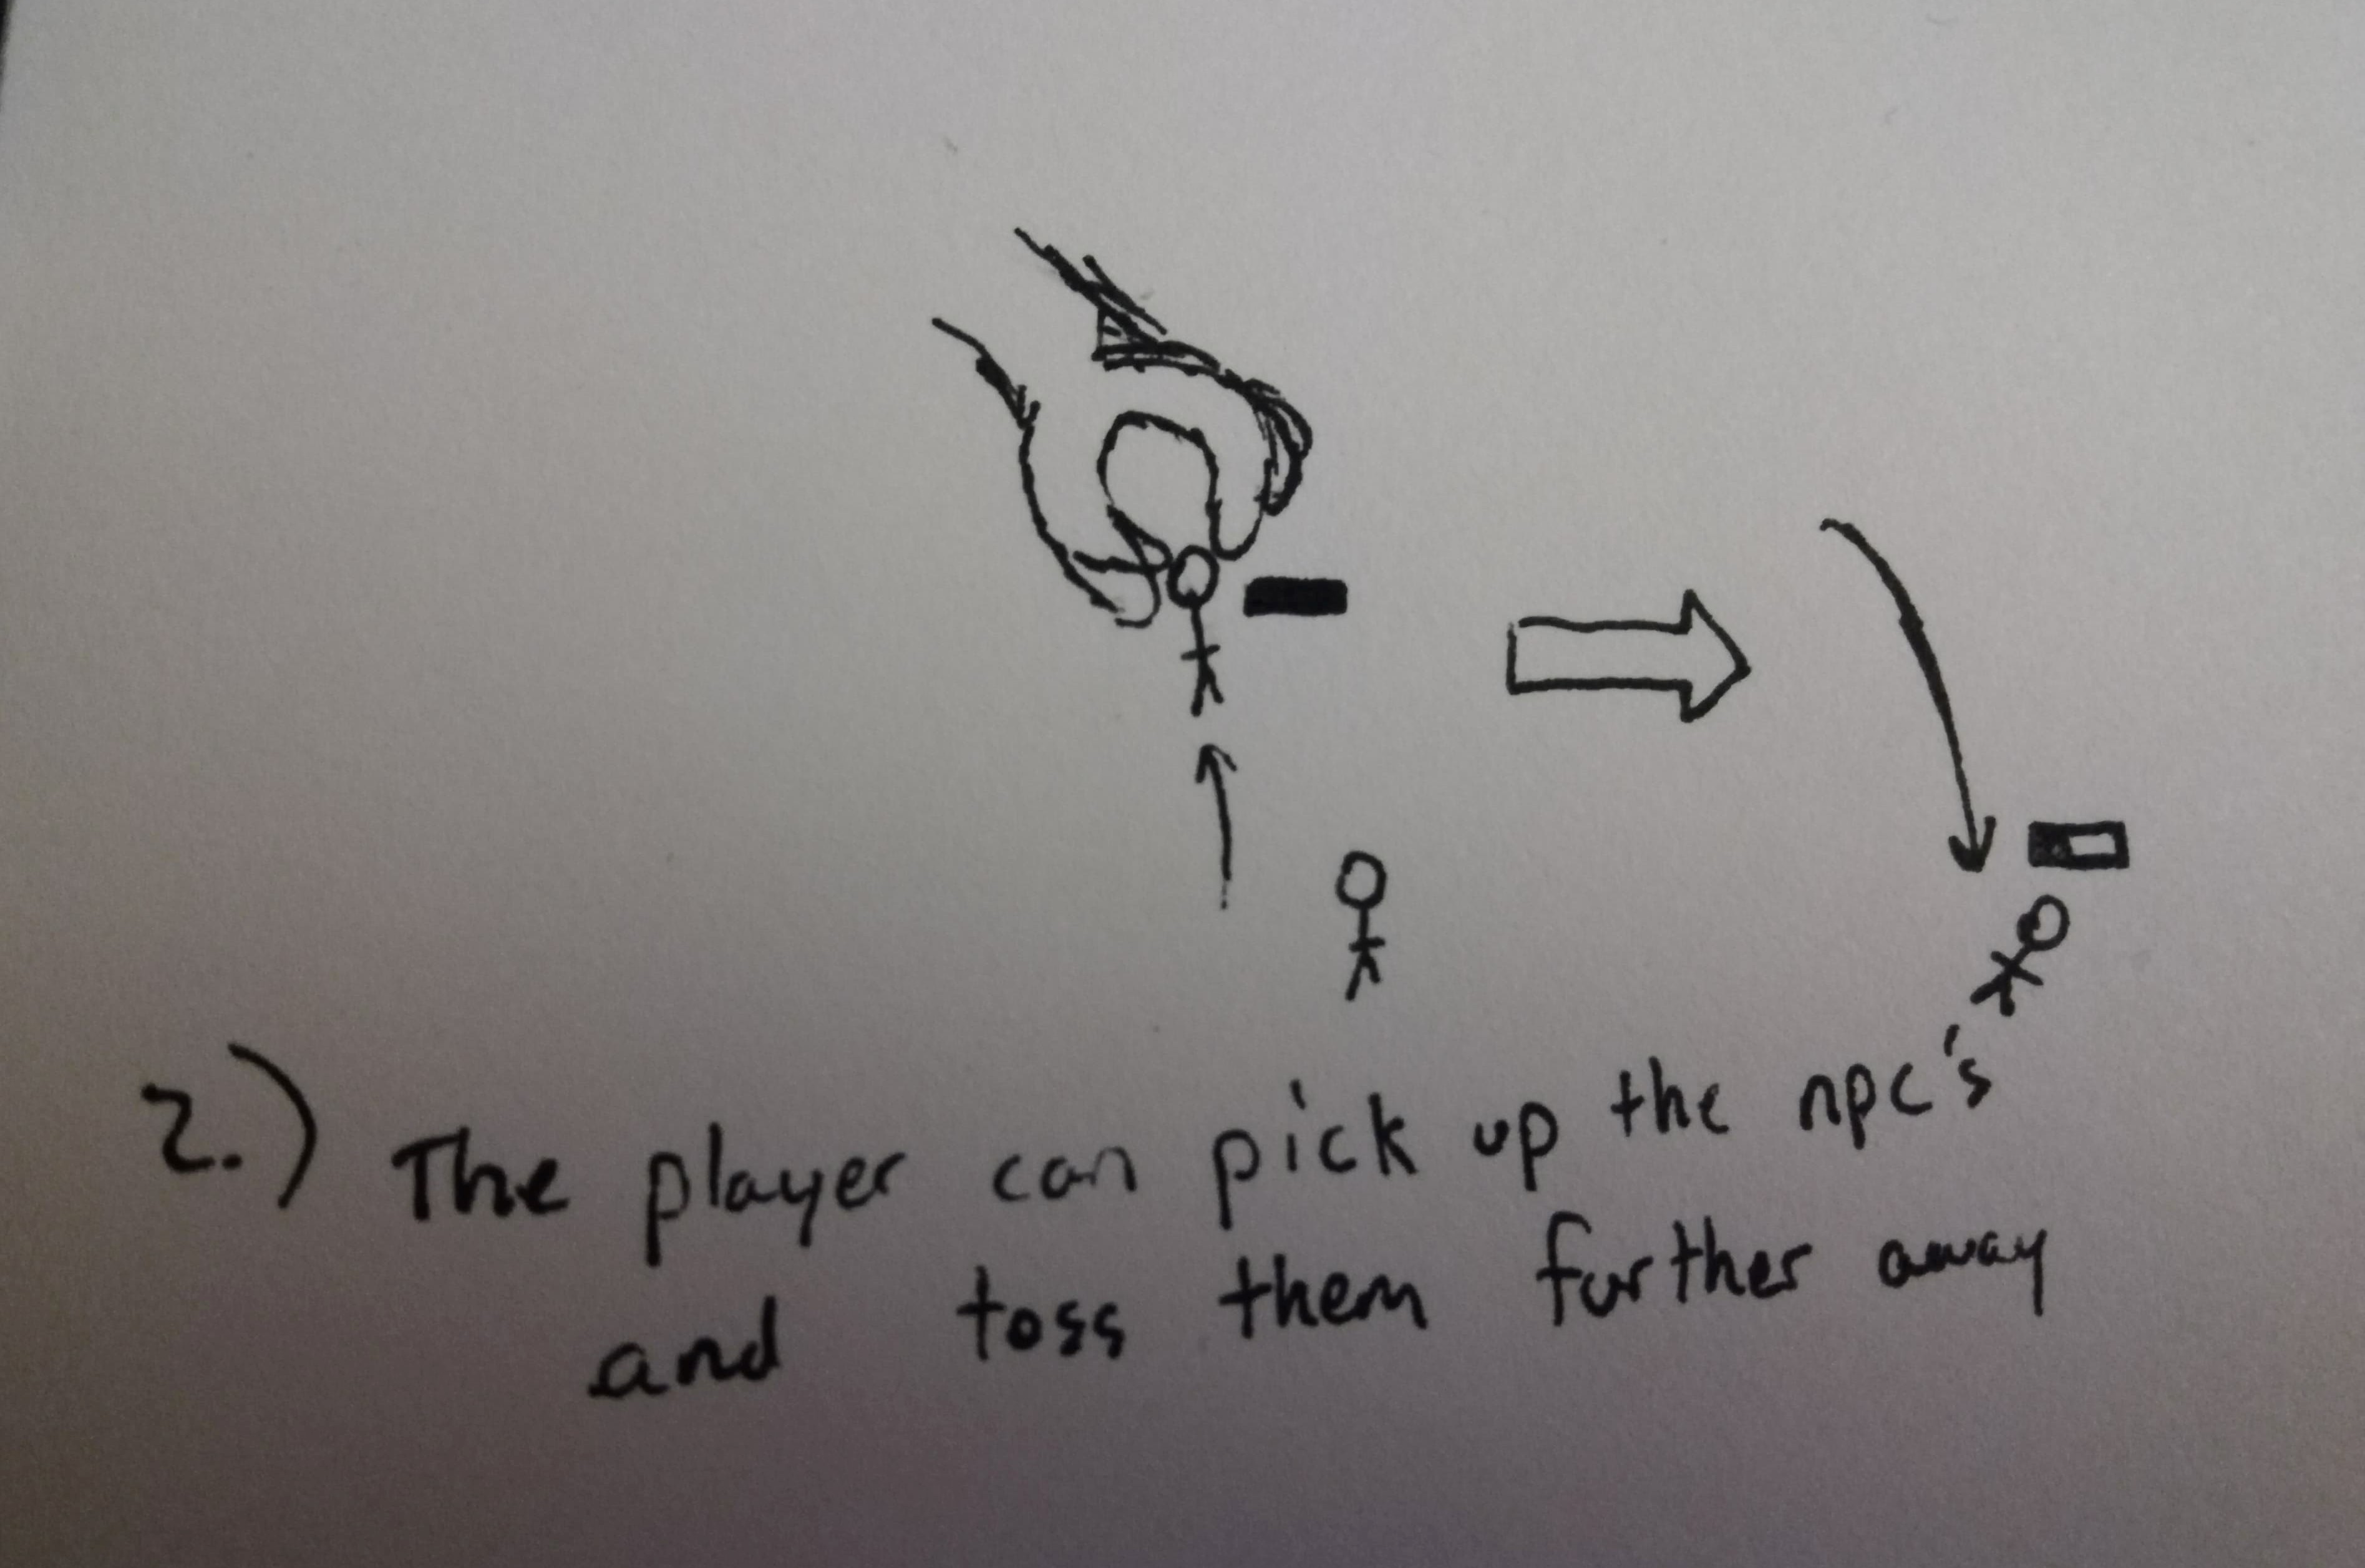 2.) The player can pick up the npc's
and toss them further away